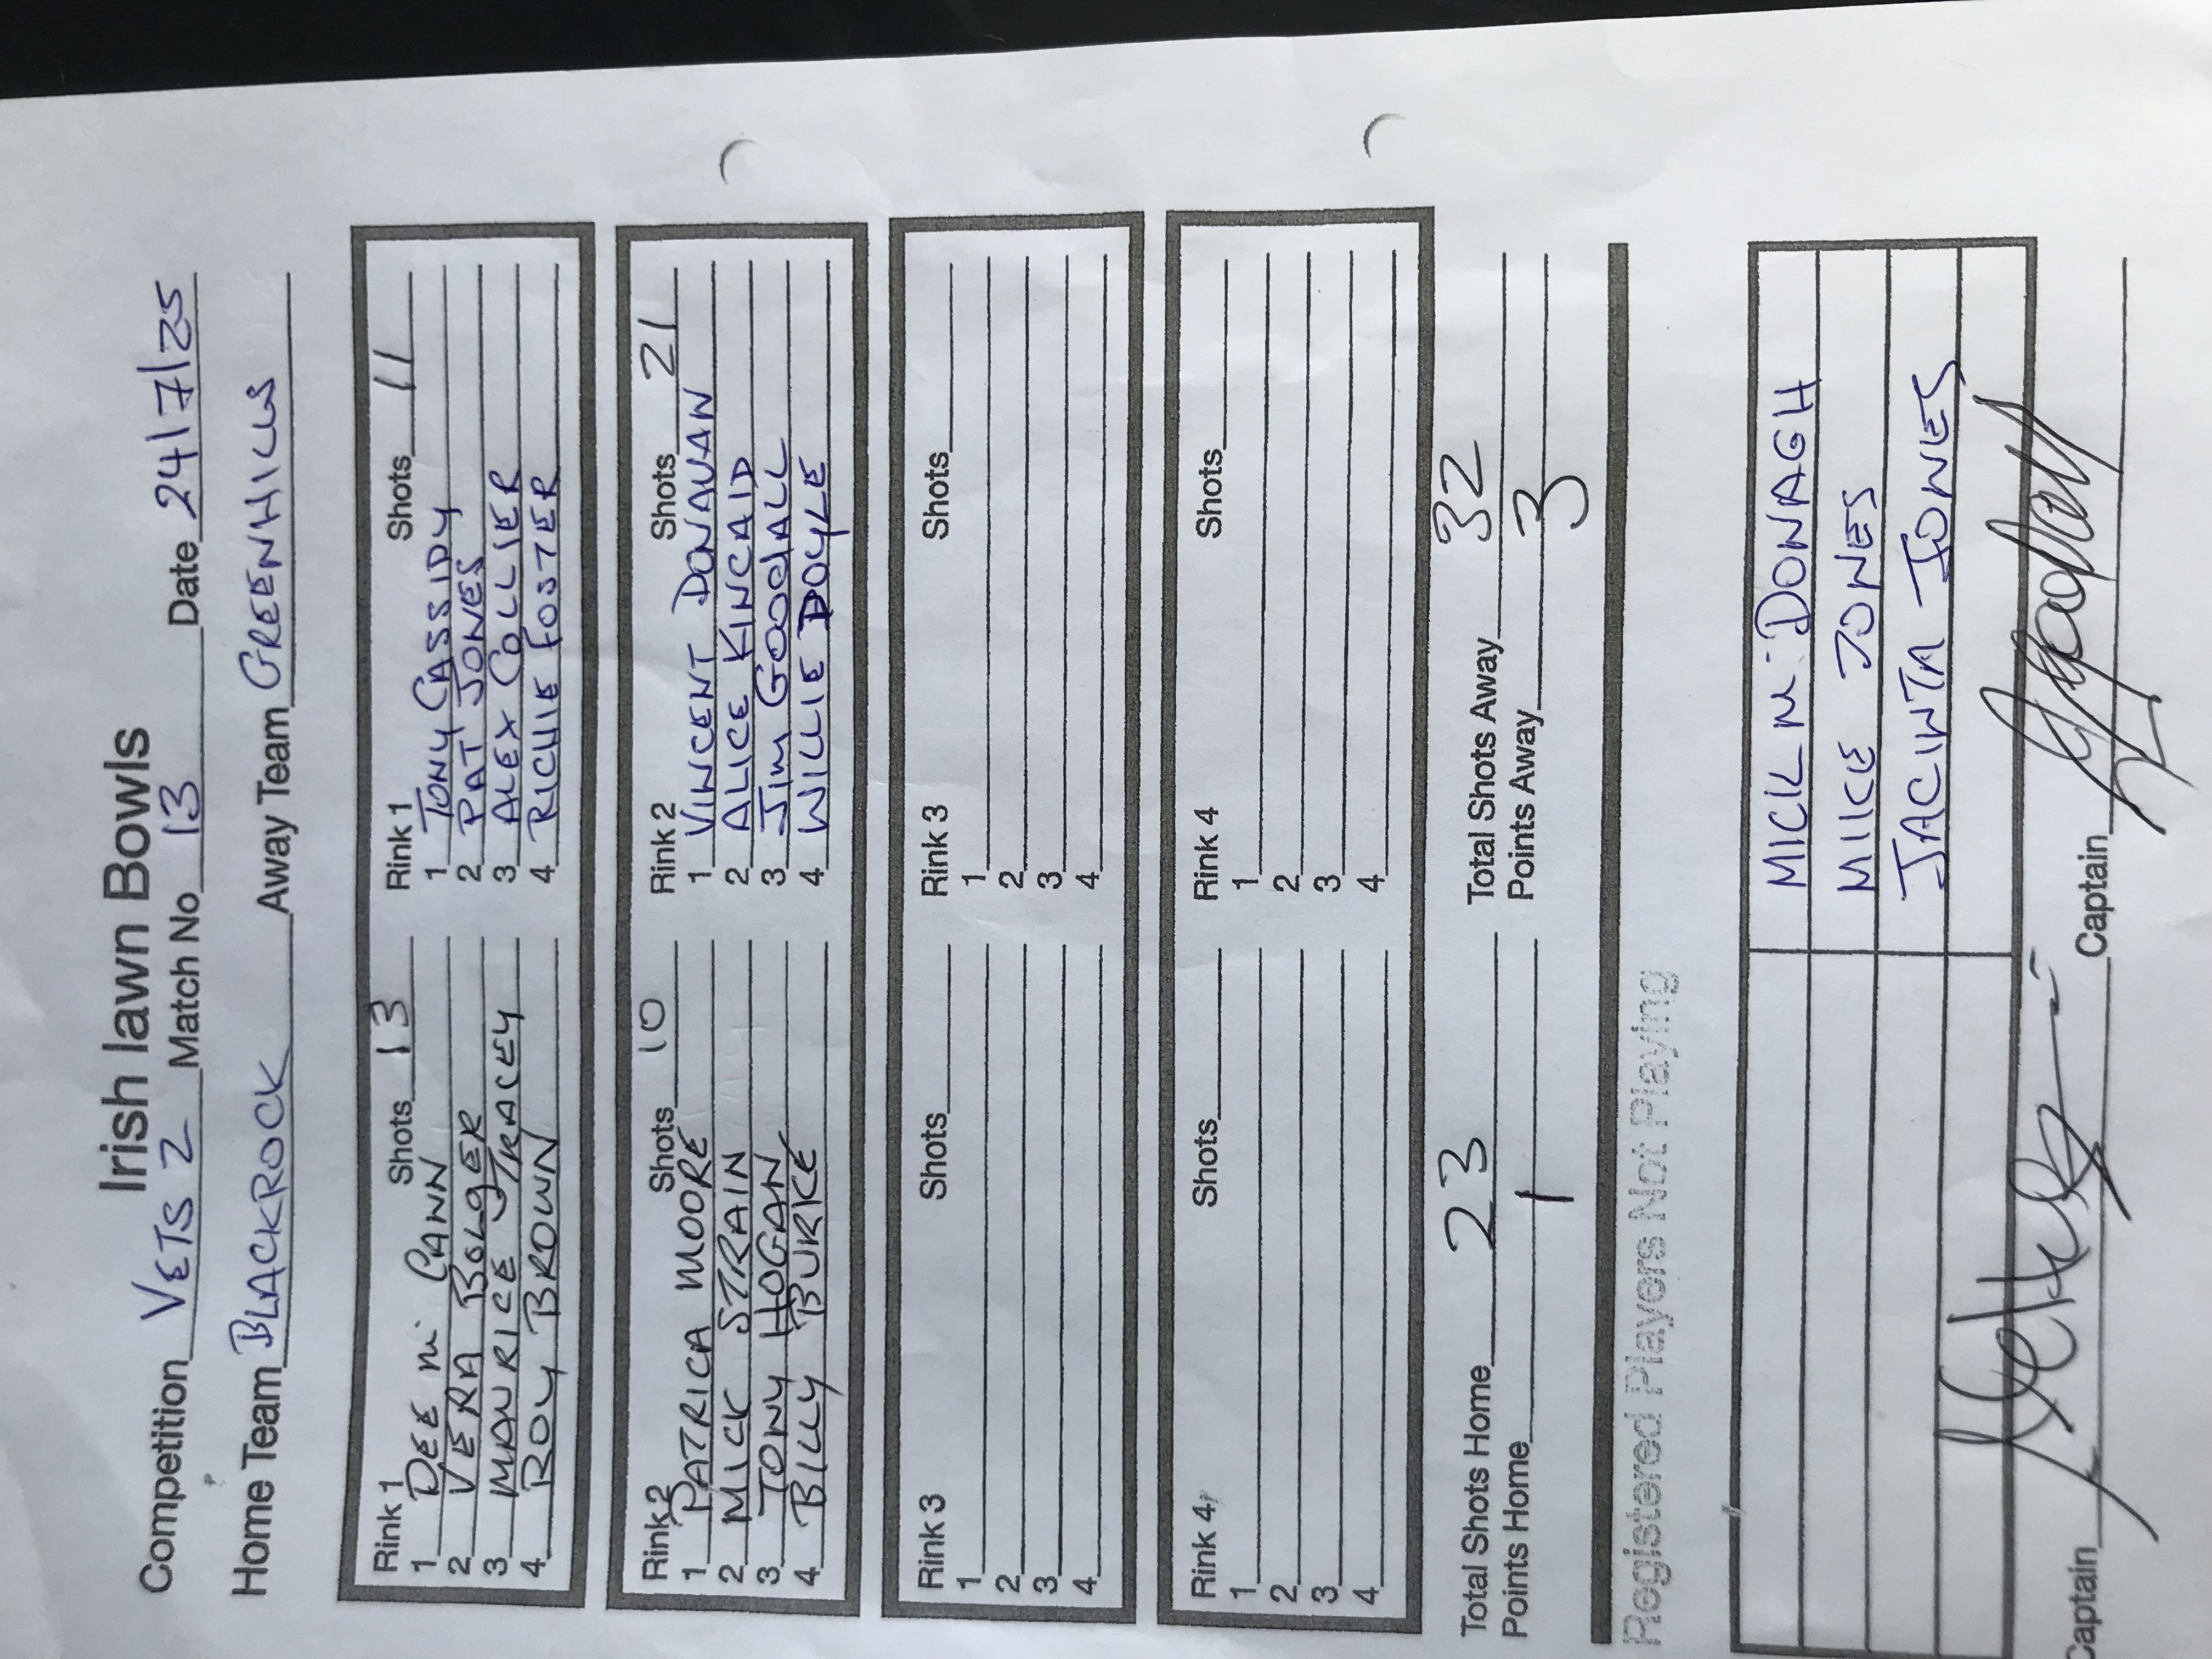 Irish lawn Bowls
Competition VETS 2 Match No 13 Date 24/7/25
Home Team BLACKROCK Away Team GREENHILLS
Rink 1 Shots 13 Rink 1 Shots 11
1 DEE Mc CANN 1 TONY CASSIDY
2 VERA BOLGER 2 PAT JONES
3 MAURICE TRACEY 3 ALEX COLLIER
4 ROY BROWN 4 RICHIE FOSTER
Rink 2 Shots 10 Rink 2 Shots 21
1 PATRICA MOORE 1 VINCENT DONAVAN
2 MICK STRAIN 2 ALICE KINCAID
3 TONY HOGAN 3 Jim GOODALL
4 BILLY BURKE 4 WILLIE DOYLE
Rink 3 Shots Rink 3 Shots
1 1
2 2
3 3
4 4
Rink 4 Shots Rink 4 Shots
1 1
2 2
3 3
4 4
Total Shots Home 23 Total Shots Away 32
Points Home 1 Points Away 3
Registered Players Not Playing
MICK Mc DONAGH
MIKE JONES
JACINTA JONES
Captain Captain